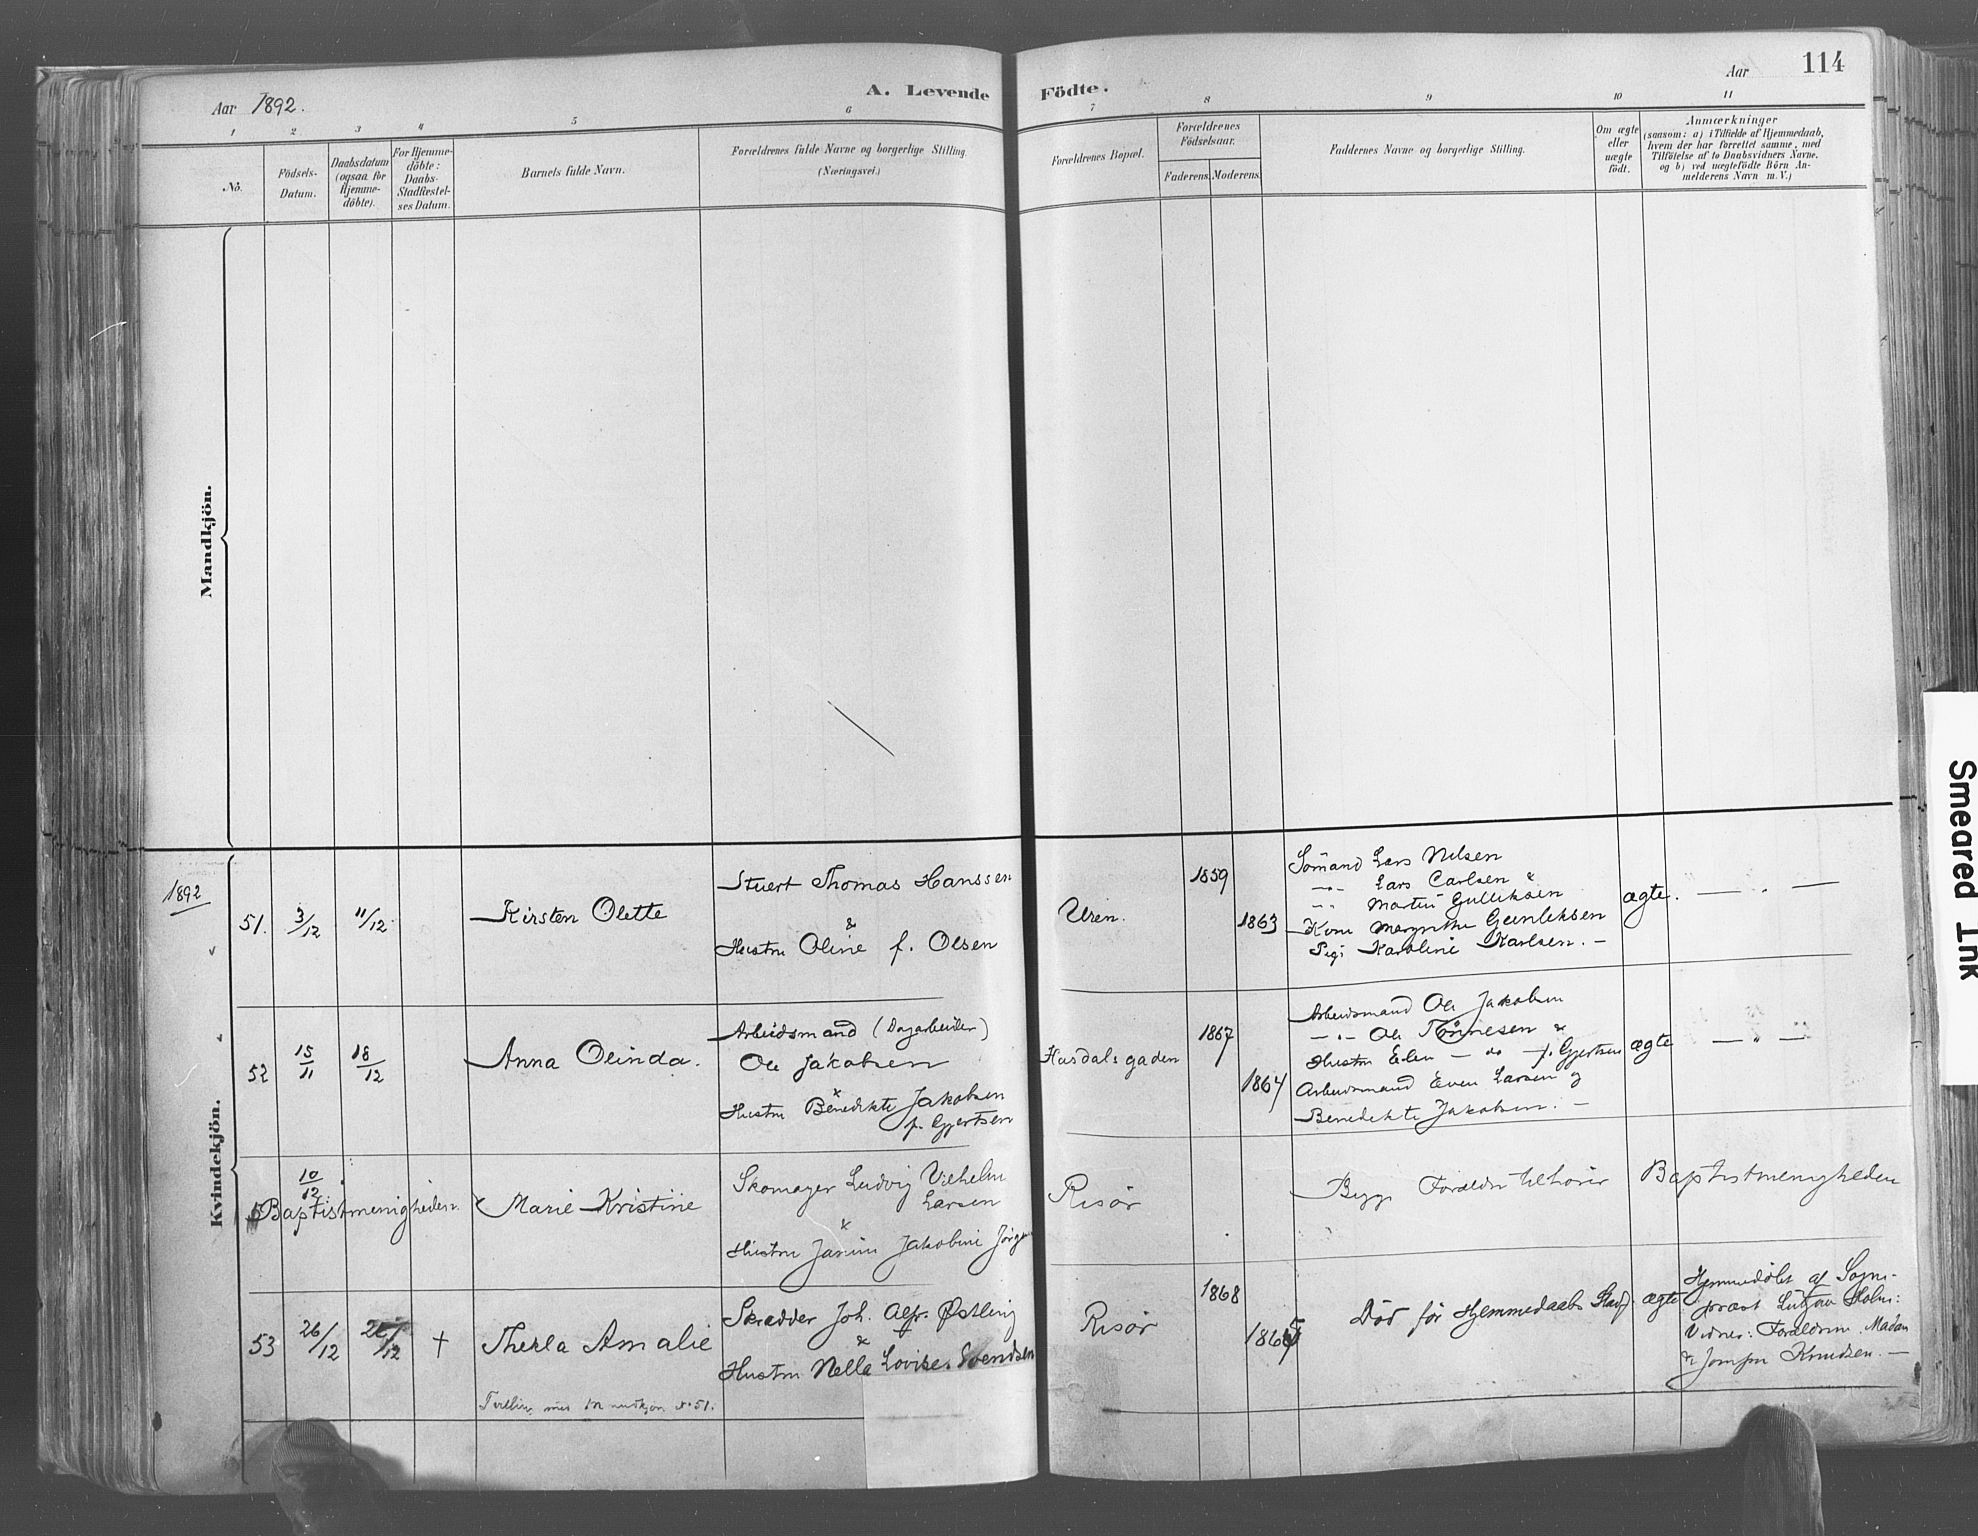 114
Aar 1892.
A. Levende Födte.
Aar
1 2 3 4 5 6 7 8 9 10 11
No.
Födsels-
Datum.
Daabsdatum
(ogsaa for
Hjemme-
döbte).
For Hjemme-
döbte:
Daabs-
Stadfæstel-
ses Datum.
Barnets fulde Navn.
Forældrenes fulde Navne og borgerlige Stilling
(Næringsvei.)
Forældrenes Bopæl.
Forældrenes
Födselsaar.
Faderens. Moderens.
Faddernes Navne og borgerlige Stilling.
Om ægte
eller
uægte
födt.
Anmærkninger
(saasom: a) i Tilfælde af Hjemmedaab,
hvem der har forrettet samme, med
Tilföielse af to Daabsvidners Navne,
og b) ved uægtefödte Börn An-
melderens Navn m. V.)
Mandkjön.
Kvindekjön.
1892
51. 3/12 11/12. Kirsten Olette
Stuert Thomas Hanssen
&
Hustru Oline f. Olsen
Uren.
1859
1863
Sömand Lars Nilsen
—"— Lars Carlsen &
—"— Martin Gulliksen
Kone Margrethe Gunleksen
Pige Karoline Karlsen. —
ægte. — " —
52 15/11 18/12 Anna Olinda.
Arbeidsmand (Dagarbeider)
Ole Jakobsen
&
Hustru Benedikte Jakobsen
f. Gjertsen
Hasdalsgaden
1867
1864
Arbeidsmand Ole Jakobsen
—"— Ole Tönnesen &
Hustru Elen — do — f. Gjertsen
Arbeidsmand Even Larsen og
Benedikte Jakobsen. —
ægte — " —
10/12
Baptistmenigheden Marie Kristine
Skomager Ludvig Vilhelm
Larsen
&
Hustru Janine Jakobine Jörg
Risör
Begge Foreldre tilhörer Baptistmenigheden
53 26/12 26/12 † Thekla Amalie
Tvilling med Mandkjøn No 51.
Skrædder Joh. Alfr. Østling
&
Hustru Nella Lovise Svendsen
Risör
1868
1865
Död för Hjemmedaabs Stadf. ægte
Hjemmedöbt af Sogne-
præst Lützow Holm:
Vidner: Forældrene. Madam
& Jomfru Knudsen. —
Smeared Ink